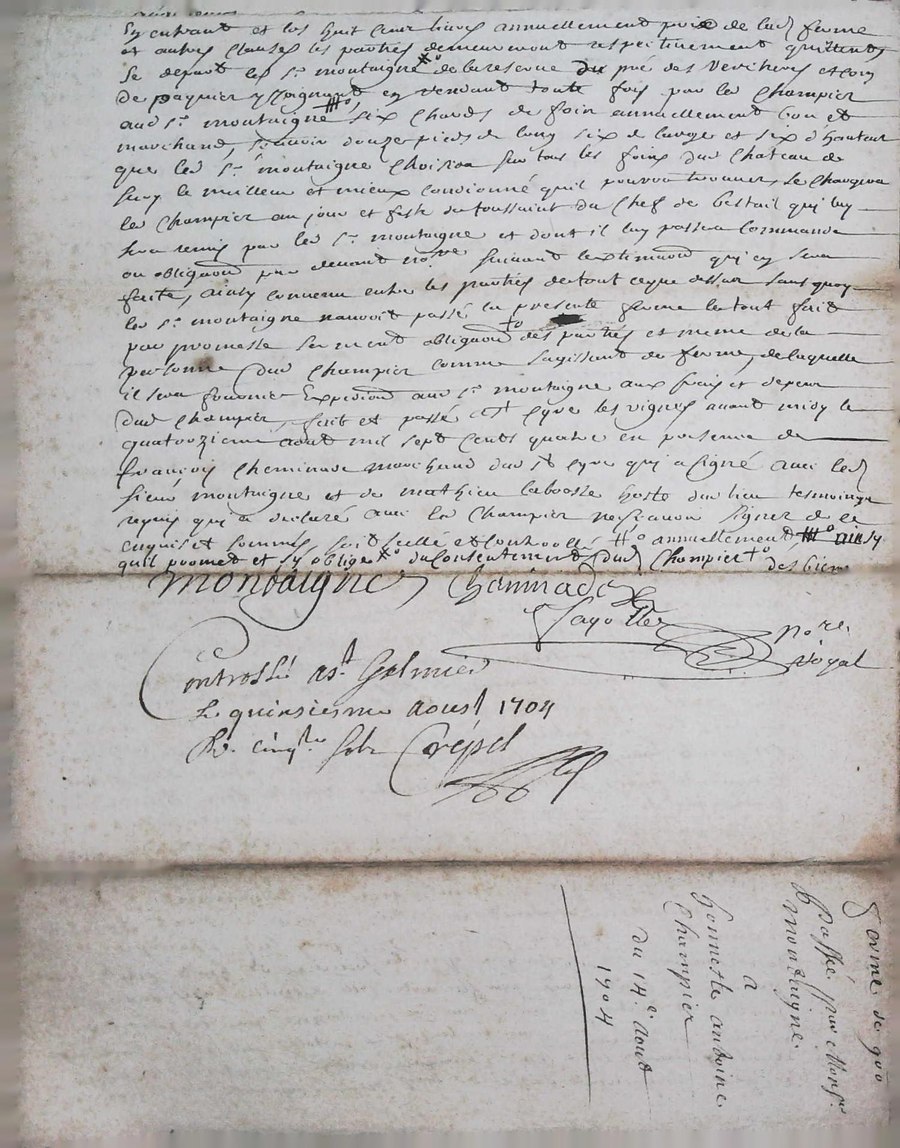 En entrant et les huit cens livres annuellement prix de lad ferme
et autres clauses les parties demeureront respectivement quittes
se depart led sr montaigne de la reserve du pré des Vercheres et
de paquier y joignant en rendant toute fois par led Champier
aud sr montaigne six Chards de foin annuellement bon et
marchand, scavoir douze pieds de long six de large et six d'hauteur
que led sr montaigne Choisira sur tous les foins dud Chateau de
le meilleur et mieux condionné quil pourra trouver, se Chargera
led Champier au jour et feste de toussaint du Chef de bestail qui luy
sera remis par led sr montaigne et dont il luy passera Commande
ou obligaon par devant nore suivant lextimaon qui en sera
faite, ainsy convenu entre les parties de tout ce que dessus sans quoy
led sr montaigne nauroit passé la presente ferme le tout fait
par promesse serment obligaon des parties et meme de la
personne dud Champier comme sagissant de ferme, de laquelle
il sera fournir Expedion aud sr montaigne aux frais et depens
dud Champier, fait et passé a st Cyre les vignes avant midy le
quatorzieme aout mil sept cents quatre en presence de
françois Cheminade marchand dud st Cyre qui a signé avec led
sieur montaigne et de mathieu labosse hoste dud lieu tesmoings
requis qui a declaré avec led Champier ne scavoir signer de ce
enquis et sommés, soit scellé et controollé annuellement, aussy
quil promet et sy oblige du Consentement dud Champier des biens
montaigne Cheminade
Nore
Royal
Controllé a st Galmier
le quinsiesme aoust 1704
R. cinq sols Crépet
ferme de 900
Passée par Monsr
montaigne.
a
honneste antoine
Champier
du 14e aout
1704